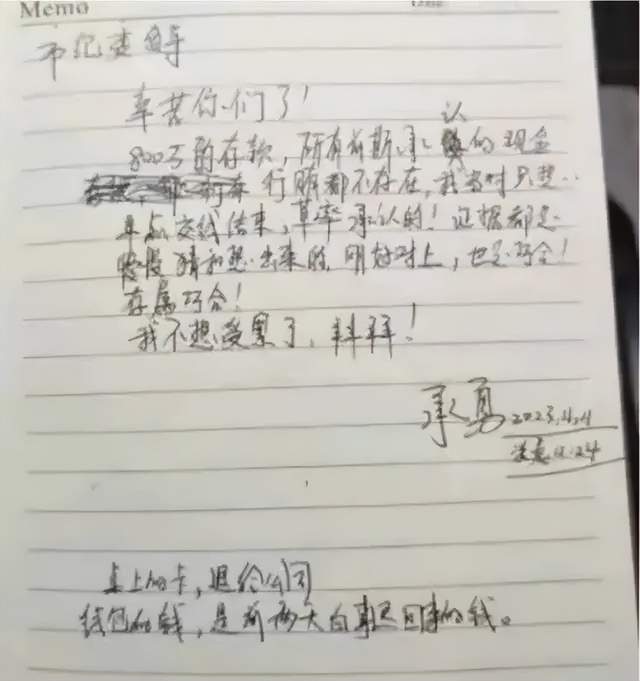 Memo
市纪委领导
辛苦你们了！
认
800万的存款，所有前期承的现金
行贿都不存在，我当时只想
早点交线结束，草率承认的！证据都是
猜和想出来的，刚好对上，也是巧合！
存属巧合！
我不想受累了，拜拜！
承勇 2023.4.4
凌晨 4:24
桌上的卡，退给公司
钱包的钱，是前两天白事退回来的钱。